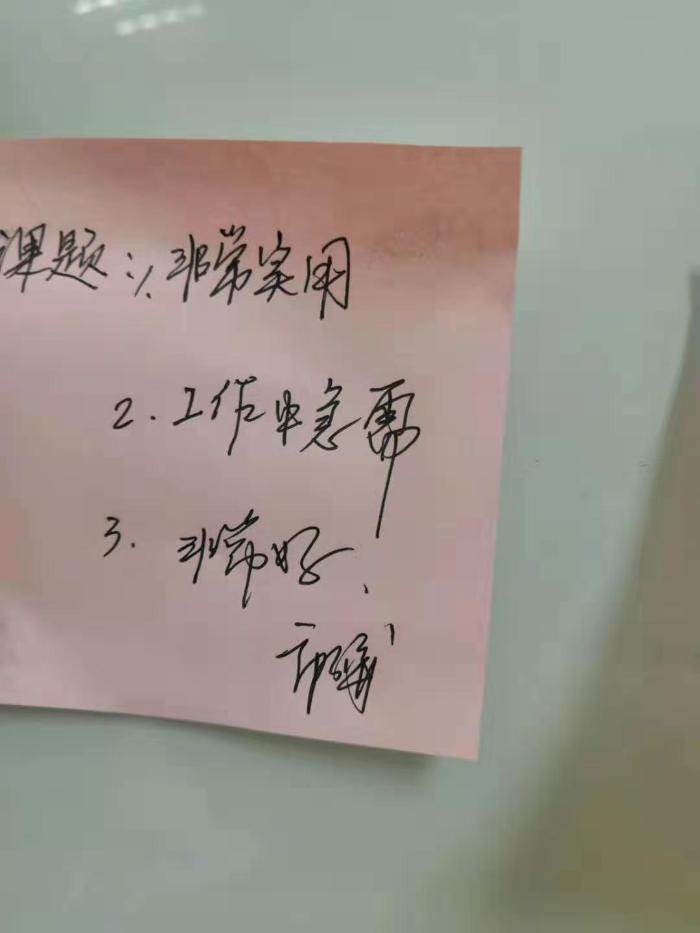 课题：1. 非常实用
2. 工作中急需
3. 非常好、